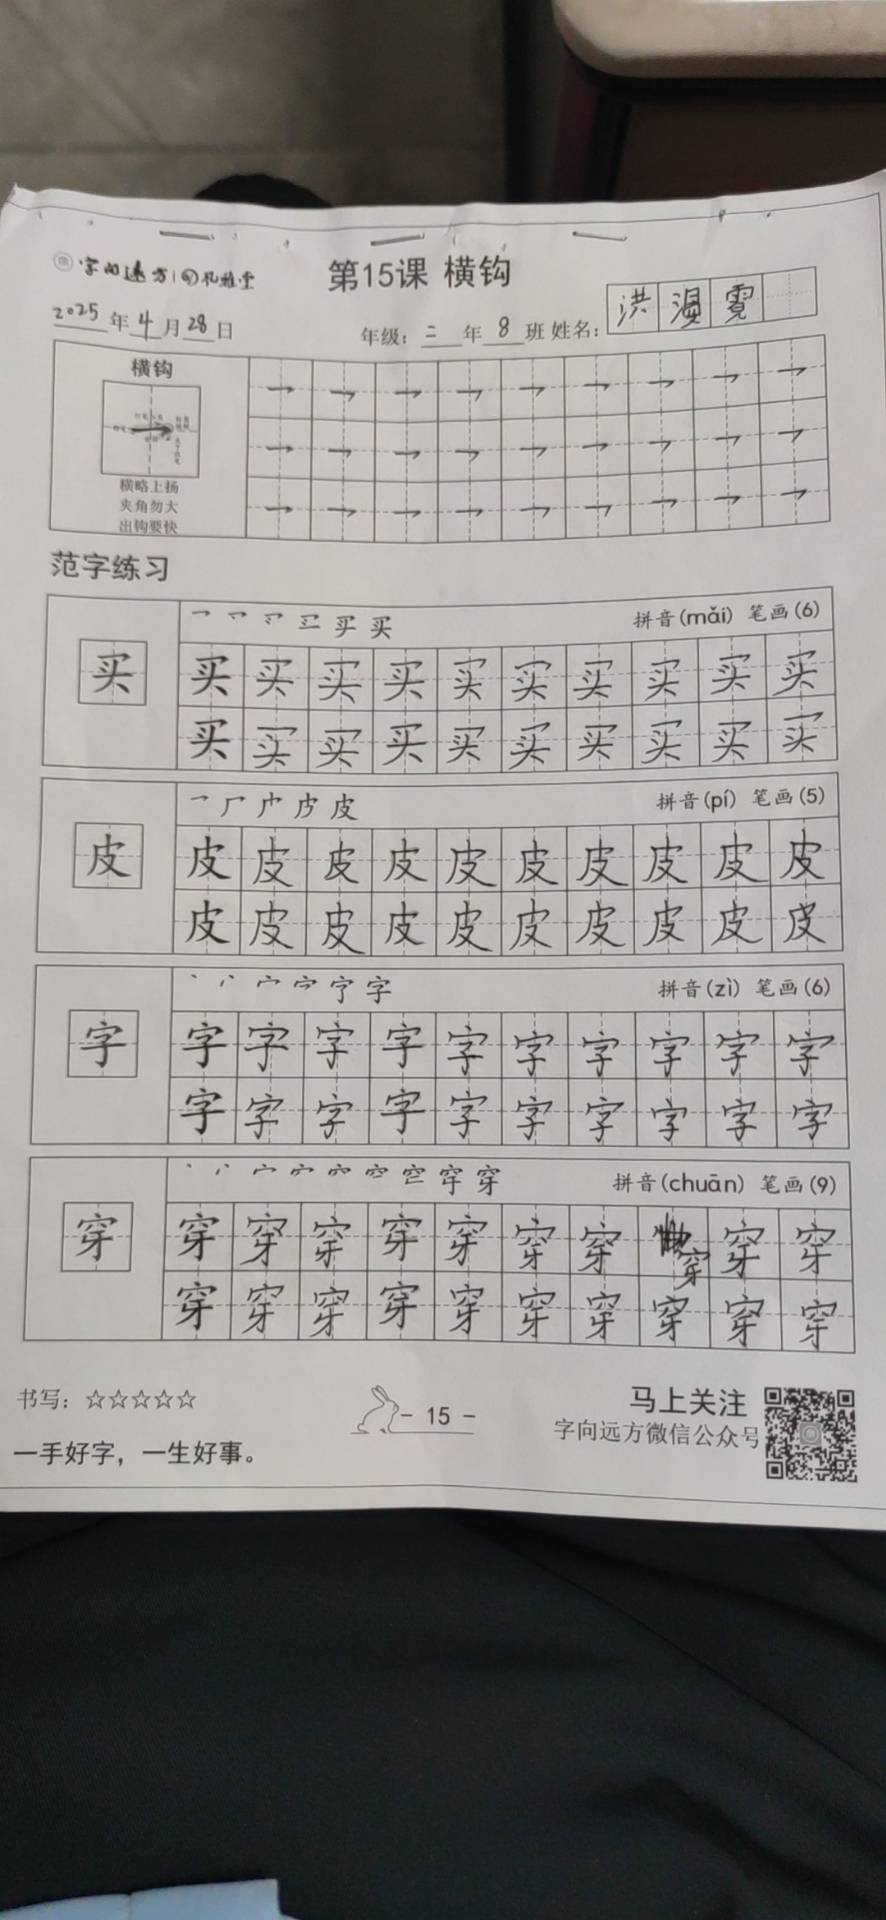 字向远方 孔雅堂
第15课 横钩
2025年4月28日
年级：二年8班 姓名：洪 霓
横钩
横略上扬
夹角勿大
出钩要快
范字练习
拼音(mǎi) 笔画(6)
买 买 买 买 买 买 买 买 买 买 买
买 买 买 买 买 买 买 买 买 买
拼音(pí) 笔画(5)
皮 皮 皮 皮 皮 皮 皮 皮 皮 皮 皮
皮 皮 皮 皮 皮 皮 皮 皮 皮 皮
拼音(zì) 笔画(6)
字 字 字 字 字 字 字 字 字 字 字
字 字 字 字 字 字 字 字 字 字
拼音(chuān) 笔画(9)
穿 穿 穿 穿 穿 穿 穿 穿 穿 穿 穿
穿 穿 穿 穿 穿 穿 穿 穿 穿 穿
书写：☆☆☆☆☆
一手好字，一生好事。
- 15 -
马上关注
字向远方微信公众号